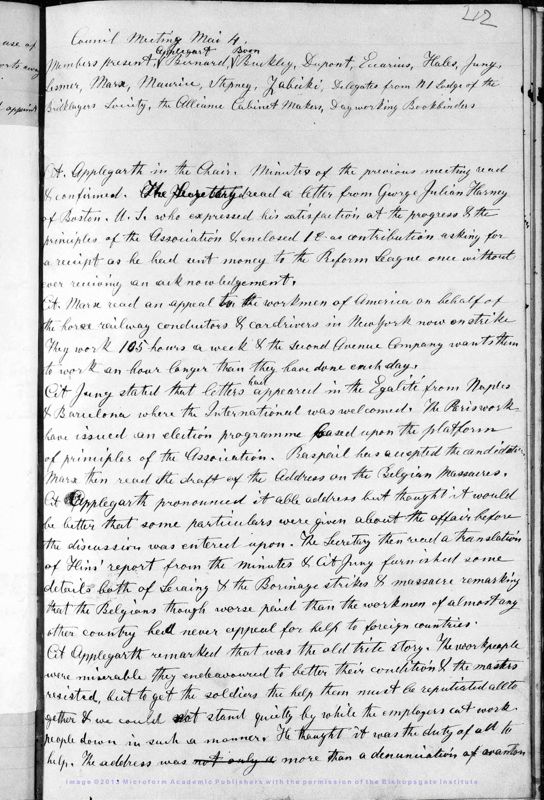 412
Council Meeting Mai 4.
Applegart Boon
Members present, Bernard, Buckley, Dupont, Eccarius, Hales, Jung,
Lesnner, Marx, Maurice, Stepney, Zabicki, Delegates from N1 Lodge of the
Bricklayers Society, the Alliance Cabinet Makers, Day working Bookbinders
Cit. Applegarth in the Chair. Minutes of the previous meeting read
& confirmed. The Secretary read a letter from George Julian Harney
of Boston. U. S. who expressed his satisfaction at the progress & the
principles of the Association & enclosed 1£ as contribution asking for
a receipt as he had sent money to the Reform League once without
ever reciving an acknowledgement.
Cit. Marx read an appeal to the workmen of America on behalf of
the horse railway conductors & cardrivers in New York now on strike
They work 105 hours a week & the Second Avenue Company wants them
to work an hour longer than they have done each day.
Cit Jung stated that letters had appeared in the Egalité from Naples
& Barcelona where the International was welcomed. The Paris work-
have issued an election programme based upon the platform
of principles of the Association. Raspail has accepted the candidature.
Marx then read the draft of the Address on the Belgian Massacres.
Cit Applegarth pronounced it able address but thought it would
be better that some particulars were given about the affair before
the discussion was entered upon. The Secretary then read a translation
of Hins' report from the minutes & Cit Jung furnished some
details both of Seraing & the Borinage strikes & massacre remarking
that the Belgians though worse paid than the workmen of almost any
other country had never appeal for help to foreign countries.
Cit Applegarth remarked that was the old trite story. The workpeople
were miserable they endeavoured to better their condition & the masters
resisted, but to get the soldiers the help them must be reputiated alltto
gether & we could not stand quietly by while the employers cut work-
people down in such a manner. He thought it was the duty of all to
help. The address was not only a more than a denunciation of a wanton
Image ©2013 Microform Academic Publishers with the permission of the Bishopsgate Institute